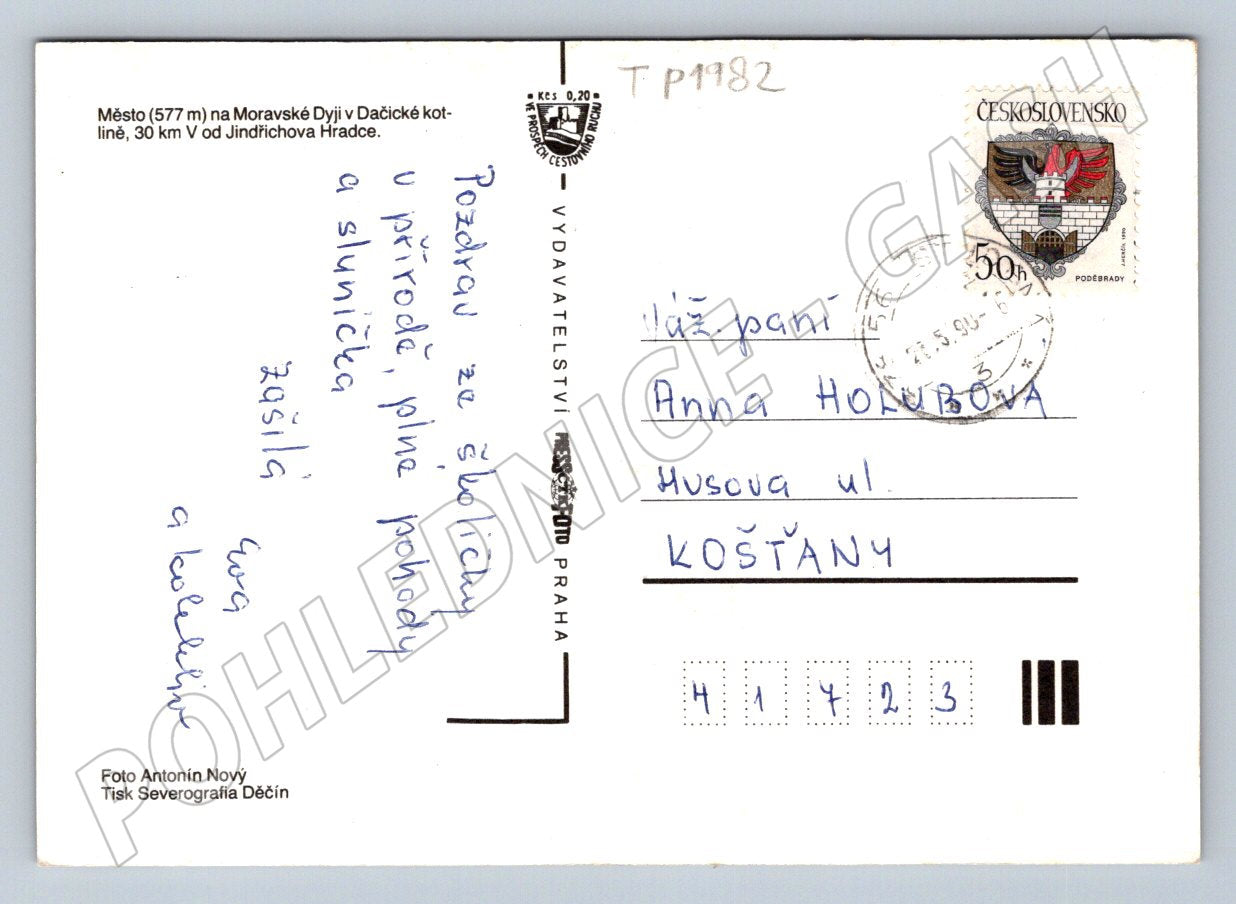 Město (577 m) na Moravské Dyji v Dačické kot-
lině, 30 km V od Jindřichova Hradce.
Pozdrav ze školičky
v přírodě, plné pohody
a sluníčka
zasílá
Eva
a kolektiv
Foto Antonín Nový
Tisk Severografia Děčín
Kčs 0,20
VE PROSPĚCH CESTOVNÍHO RUCHU
VYDAVATELSTVÍ PRESSFOTO PRAHA
ČTK
TP1982
ČESKOSLOVENSKO
50h
PODĚBRADY
5.90-6
3
Váž. paní
Anna HOLUBOVA
Husova ul.
KOŠŤANY
41723
POHLEDNICE - GASH